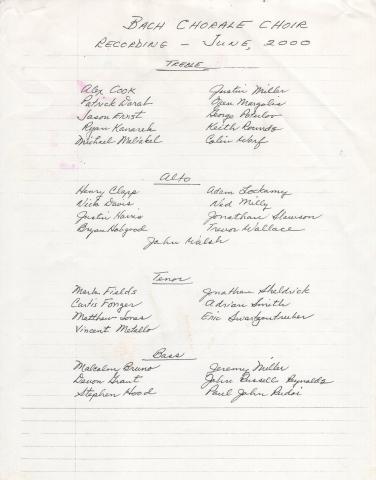 BACH CHORALE CHOIR
RECORDING - JUNE, 2000
TREBLE
Alex Cook Justin Miller
Patrick Dorat Drew Margolis
Jason Ernst George
Ryan Kanarek Keith Rounds
Michael Colin Werf
Alto
Henry Clapp Adam Lockamy
Nick Davis Ned Milly
Justin Harris Jonathan Slawson
Bryan Hobgood Trevor Wallace
John Walsh
Tenor
Merle Fields Jonathan Sheldrick
Curtis Fonger Adrian Smith
Matthew Jonas Eric Swartzentruber
Vincent Metallo
Bass
Malcolm Bruno Jeremy Miller
Devon Grant John Russell Reynolds
Stephen Hood Paul John Rudoi